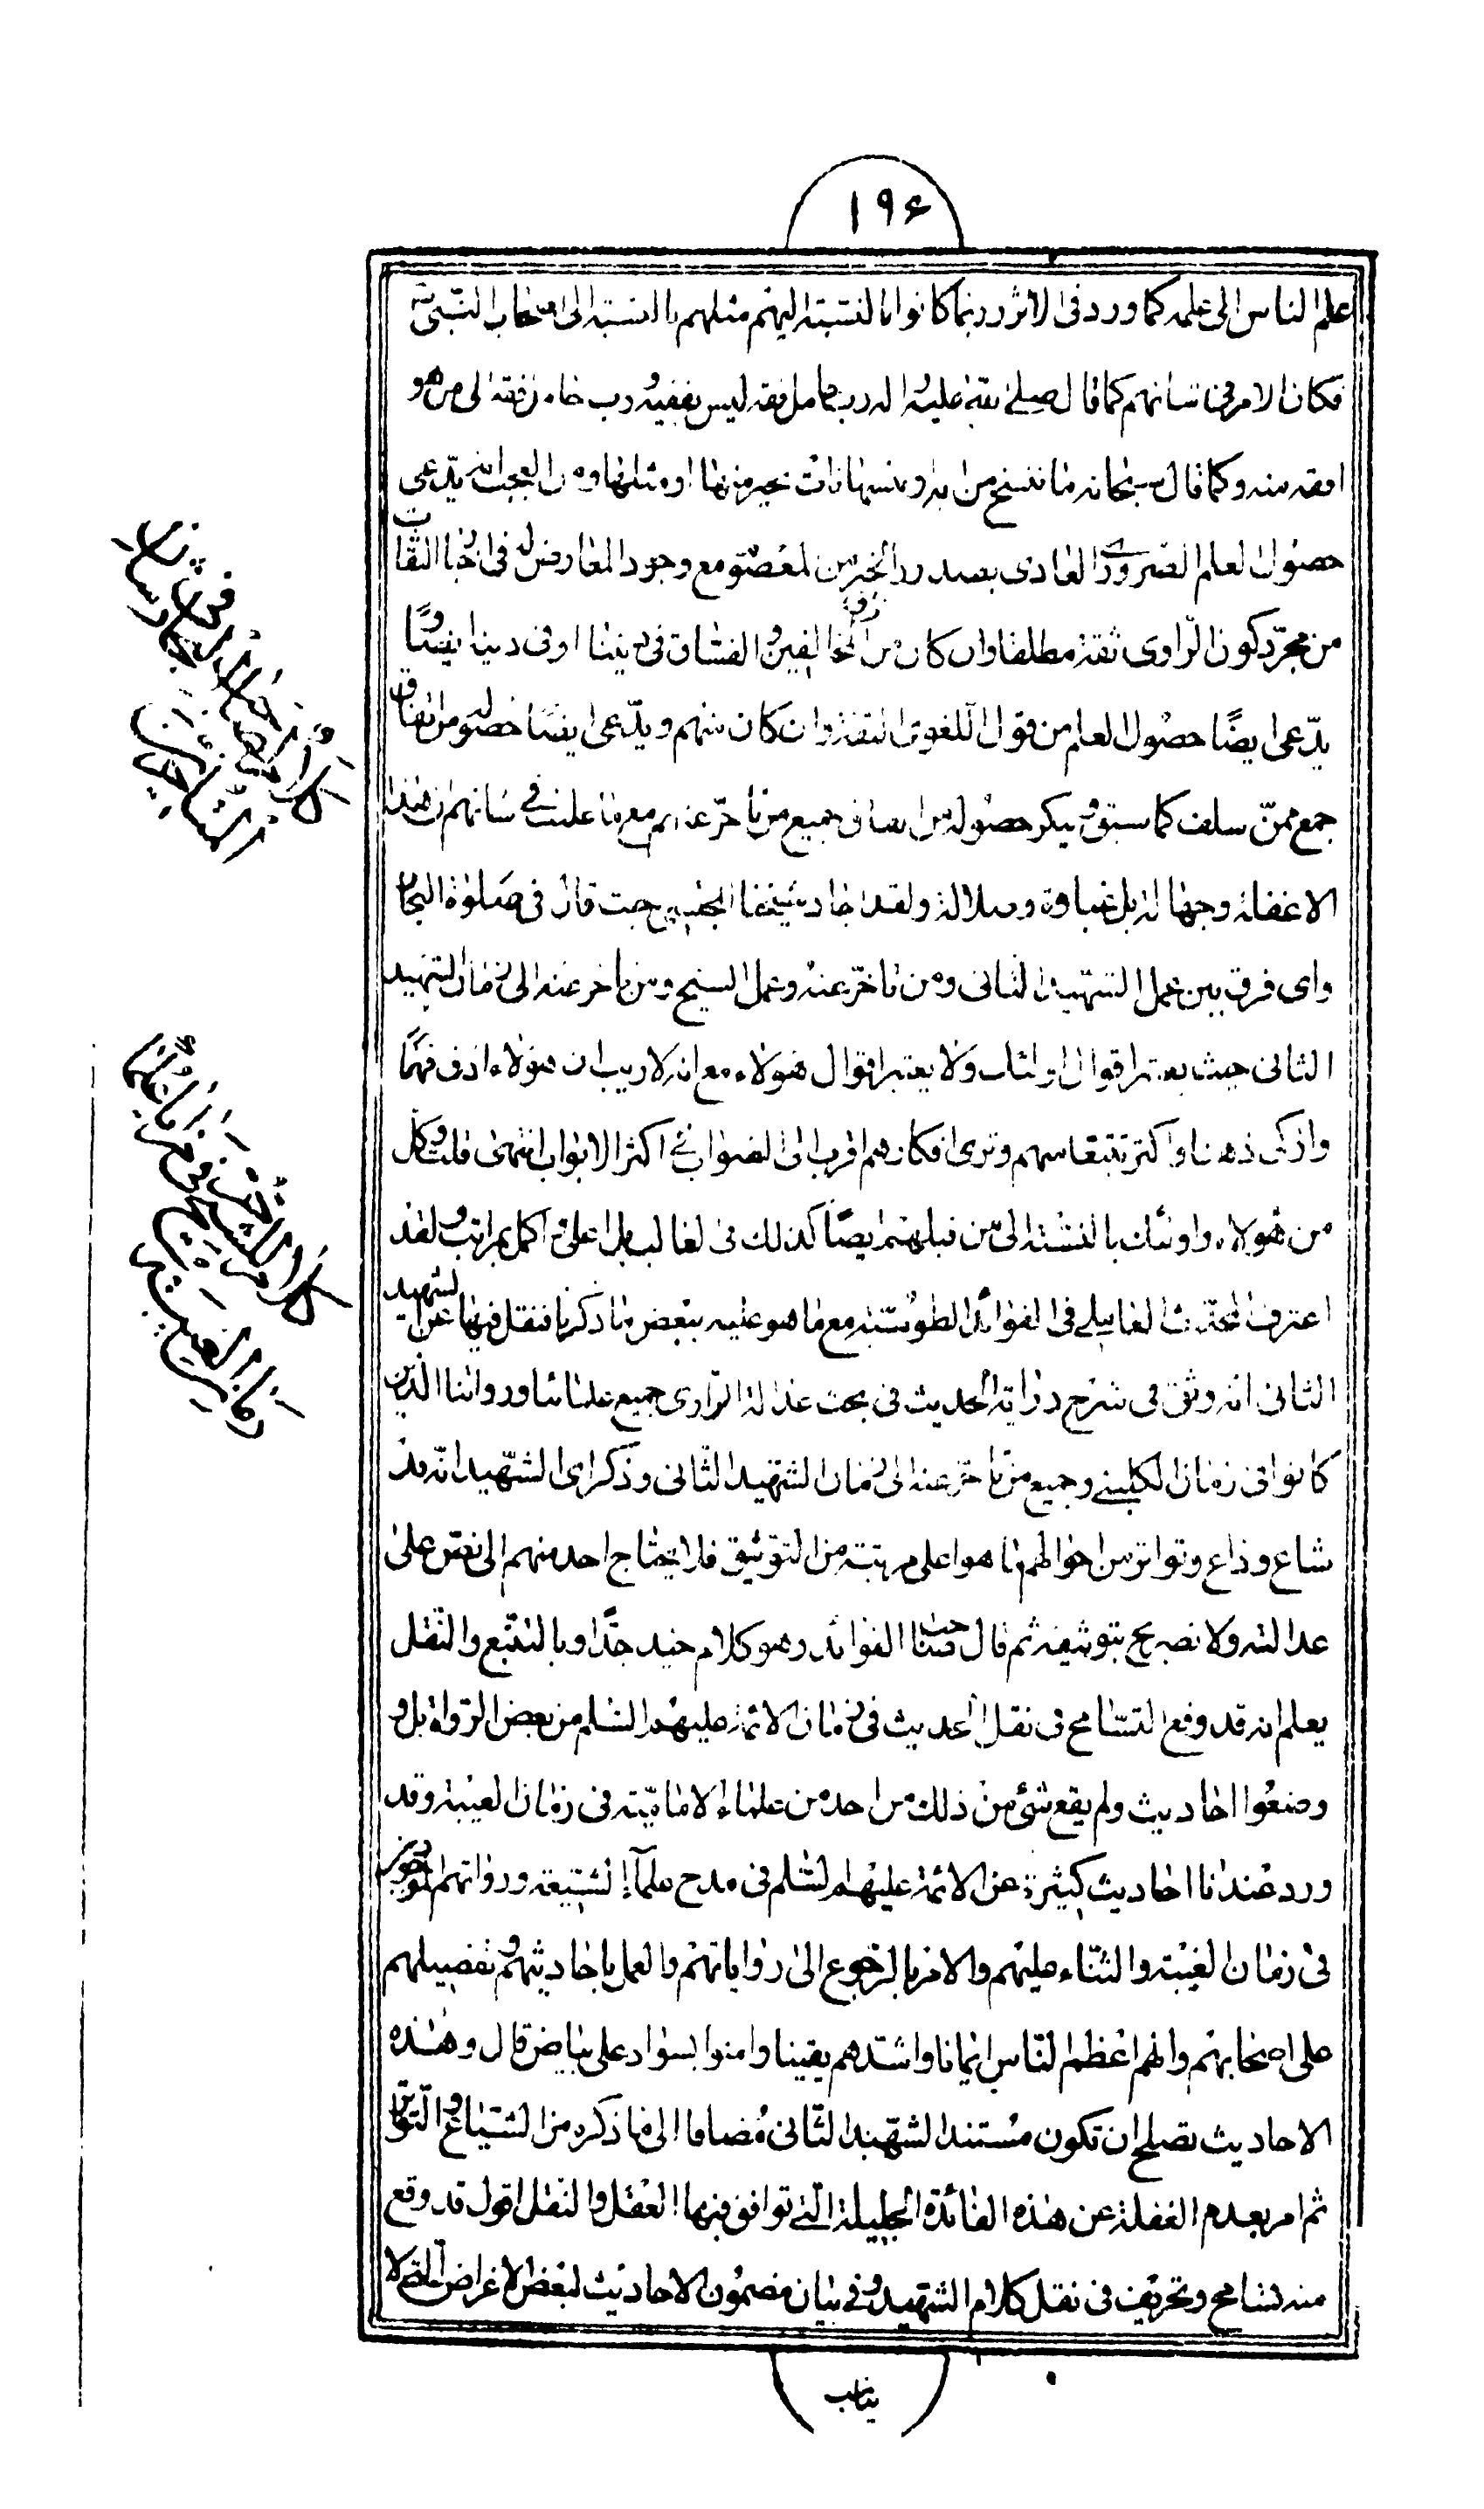 ١٩۶
علم الناس الى علمه كما ورد فى الاثر وربما كانوا بالنسبة اليهم مثلهم بالنسبة الى اصحاب النبىّ
فكان الامر فى شانهم كما قال صلى الله عليه واله رب حامل فقه ليس بفقيه ورب حامل فقه الى من هو
افقه منه وكما قال سبحانه ما ننسخ من اية او ننسها نات بخير منها او مثلها ومن العجب انه يدّعى
حصول العلم الضرورى العادى بصدور الخبر من المعصوم مع وجود المعارض له فى اخبار الثقات
من مجرّد كون الرّاوى ثقة مطلقا وان كان من المخالفين والفساق فى ديننا او فى دينه ايضًا و
يدّعى ايضًا حصول العلم من قول اللغوى الثقة وان كان منهم ويدّعى ايضًا حصوله من اتفاق
جمع ممّن سلف كما سبق و ينكر حصوله من اتفاق جميع من تاخّر عنهم مع ما علمت فى شانهم ان هذا
الا غفلة وجهالة بل غباوة وضلالة ولقد اجاد شيخنا البهبهانى حيث قال فى
واى فرق بين عمل الشهيد الثانى ومن تاخّر عنه وعمل الشيخ ومن تاخر عنه الى زمان الشهيد
الثانى حيث يعتبر اقوال اولئك ولا يعتبر اقوال هؤلاء مع انه لا ريب ان هؤلاء ادق فهمًا
وازكى ذهنا واكثر تتبعا منهم ونرى افكارهم اقرب الى الصواب فى اكثر الابواب انتهى قلت وكل
من هؤلاء واولئك بالنسبة الى من قبلهم ايضًا كذلك فى الغالب بل اعلى واكمل بمراتب ولقد
اعترف المحدّث العاملى فى الفوائد الطوسيّة مع ما هو عليه ببعض ما ذكرنا فنقل فيها عن الشهيد
الثانى انه وثق فى شرح دراية الحديث فى بحث عدالة الرّاوى جميع علمائنا ورواتنا الذين
كانوا فى زمان الكلينى وجميع من تاخّر عنه الى زمان الشهيد الثانى وذكر اى الشّهيد انّه قد
شاع وذاع وتواتر من احوالهم ما هو اعلى مرتبة من التوثيق فلا يحتاج احد منهم الى نصّ على
عدالته ولا تصريح بتوثيقه ثم قال صاحب الفوائد وهو كلام جيد جدًّا وبالتتبّع والنّقل
يعلم انه قد وقع التسامح فى نقل الحديث فى زمان الائمة عليهم السّلم من بعض الرّواة بل و
وضعوا احاديث ولم يقع شئ من ذلك من احد من علماء الاماميّة فى زمان الغيبة وقد
ورد عندنا احاديث كثيرة عن الائمة عليهم السّلم فى مدح علمآء الشيعة ورواتهم الموجودين
فى زمان الغيبة والثنّاء عليهم والامر بالرّجوع الى رواياتهم والعمل باحاديثهم و تفضيلهم
على اصحابهم وانهم اعظم النّاس ايمانا واشدهم يقينا وامنوا بسواد على بياض قال وهذه
الاحاديث تصلح ان تكون مستند الشّهيد الثّانى مضافا الى ما ذكره من الشّياع و التّواتر
ثم امر بعدم الغفلة عن هذه الفائدة الجليلة الّتى توافق فيها العقل والنقل اقول قد وقع
منه تسامح وتحريف فى نقل كلام الشّهيد و فى بيان مضمون الاحاديث لبعض الاغراض التى لا